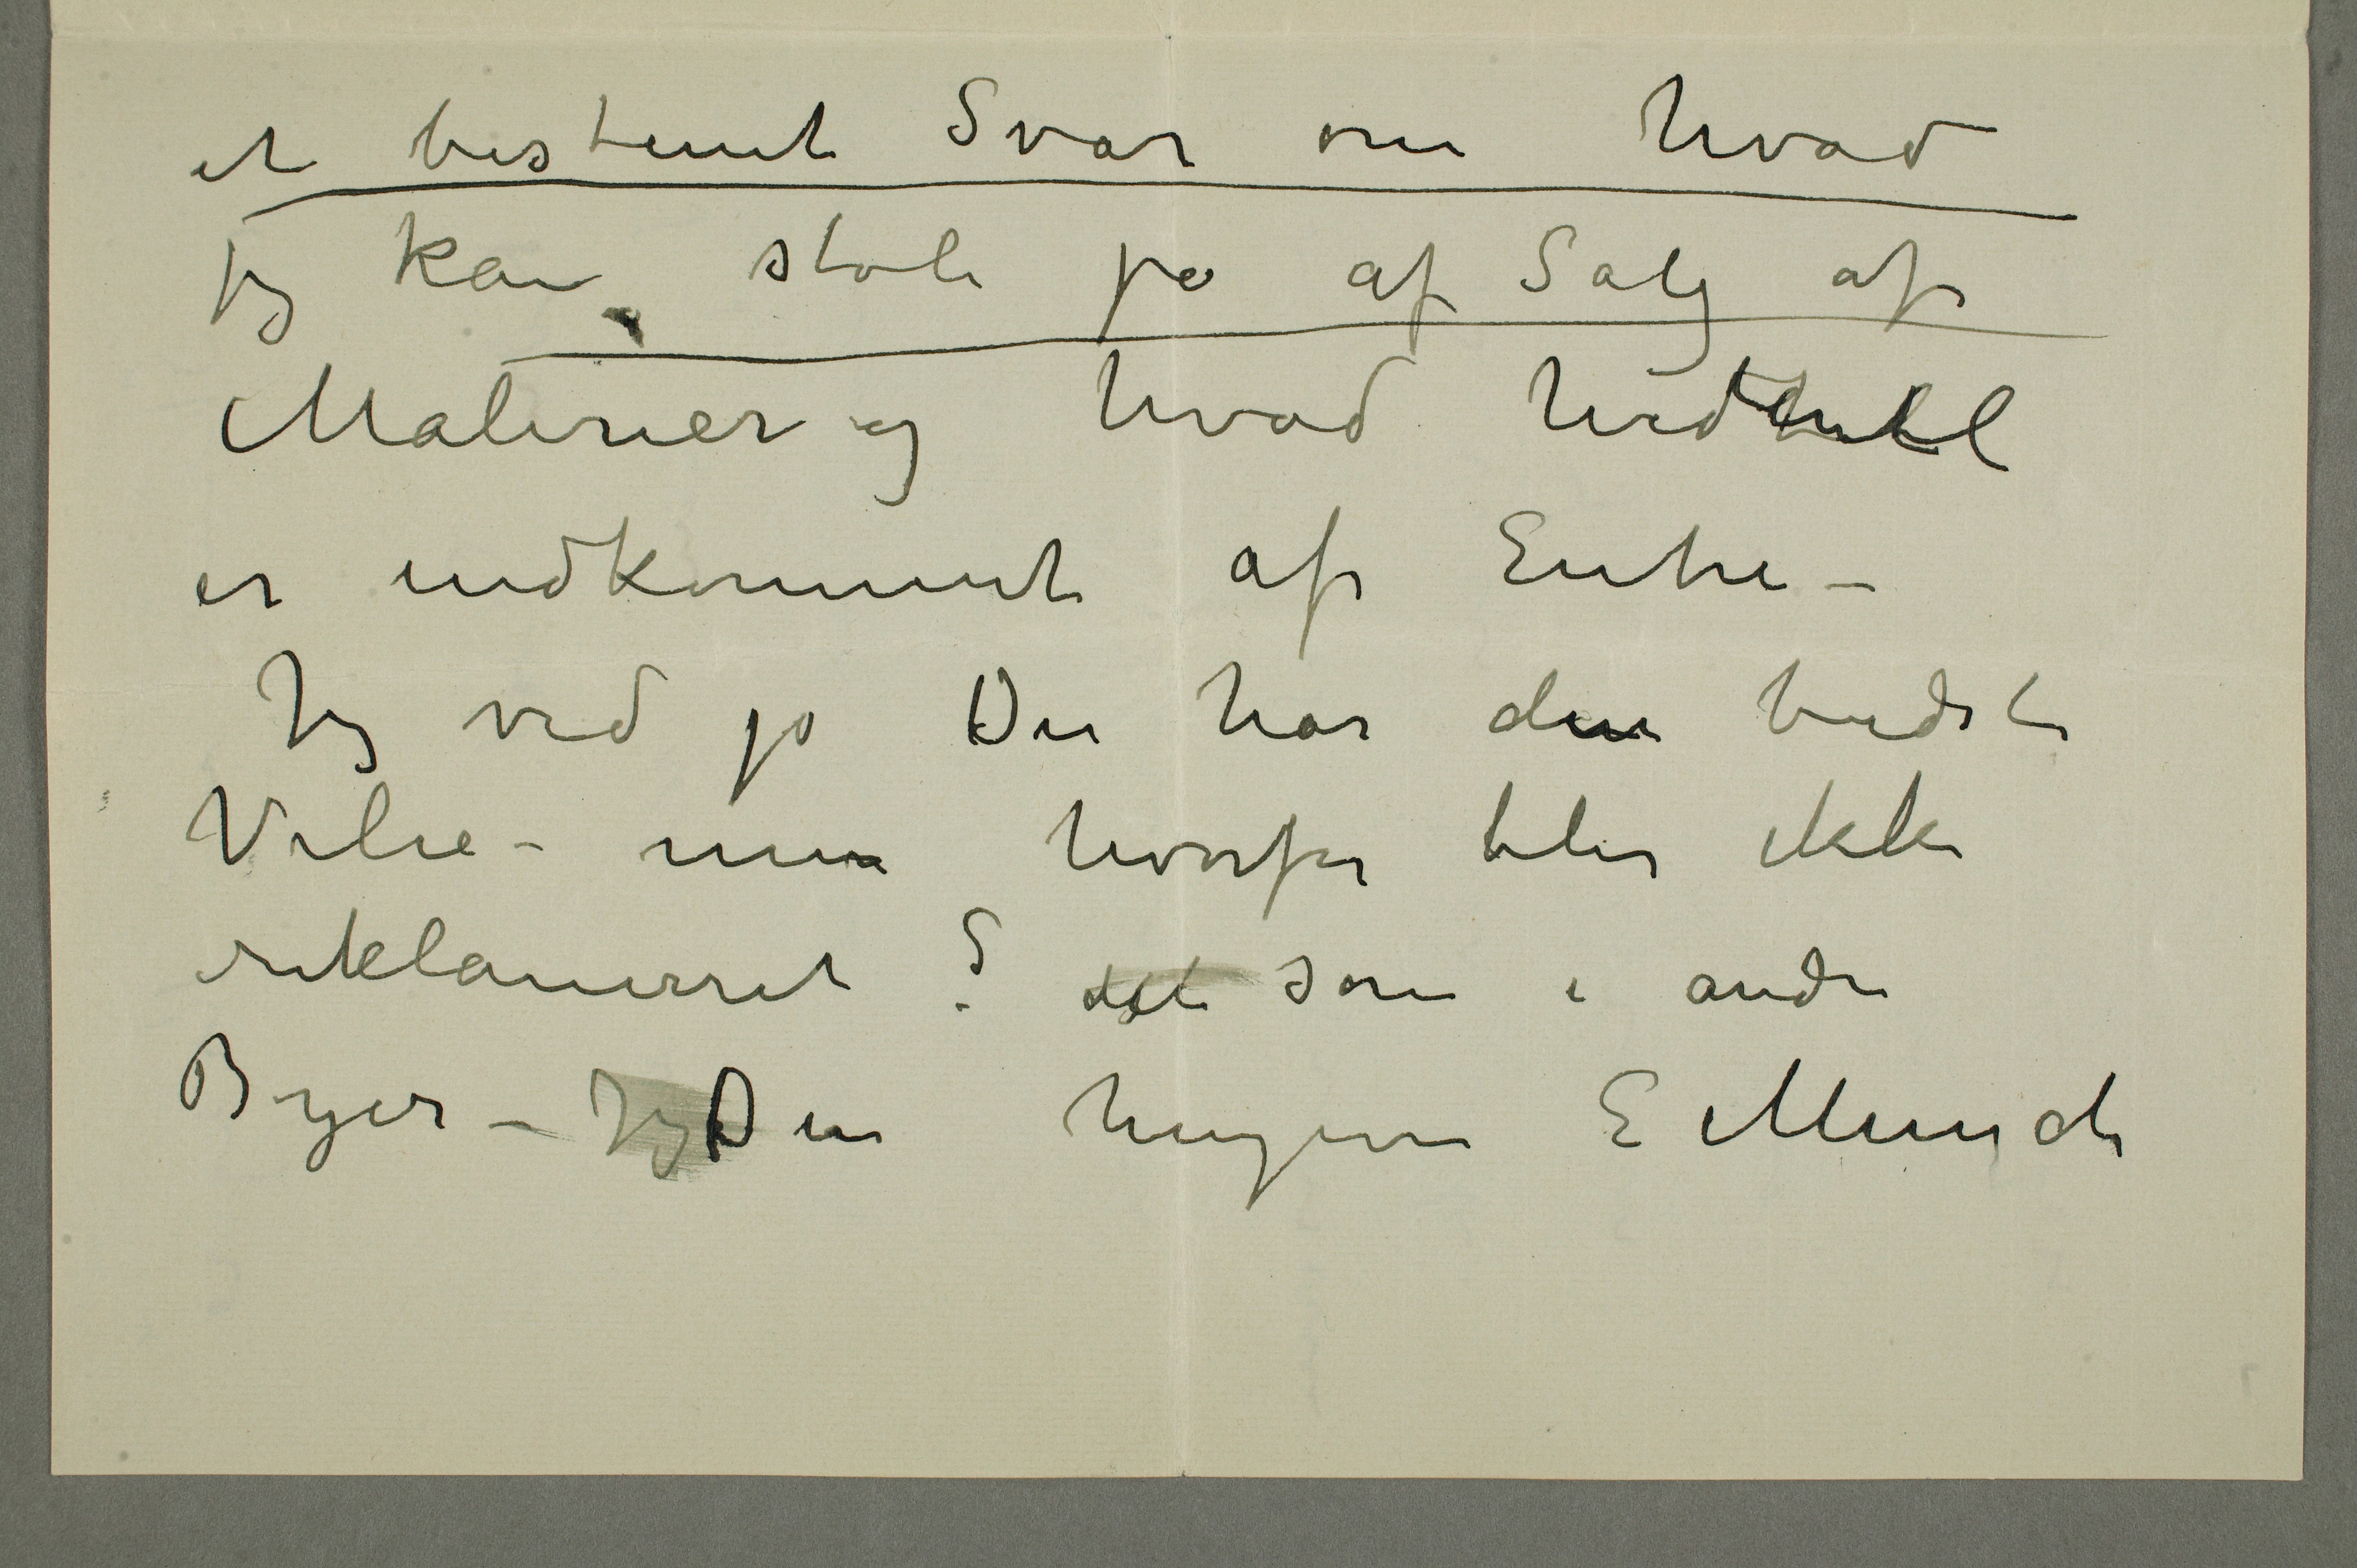 et bestemt Svar om hvad
jeg kan stole på af Salg af
Malerier og hvad hidtil
er indkommet af Entre –
Jeg ved jo De har den bedste
Vilie – men hvorfor blir ikke
reklameret? det som i andre
Byer – Jeg Den hengivne E Munch